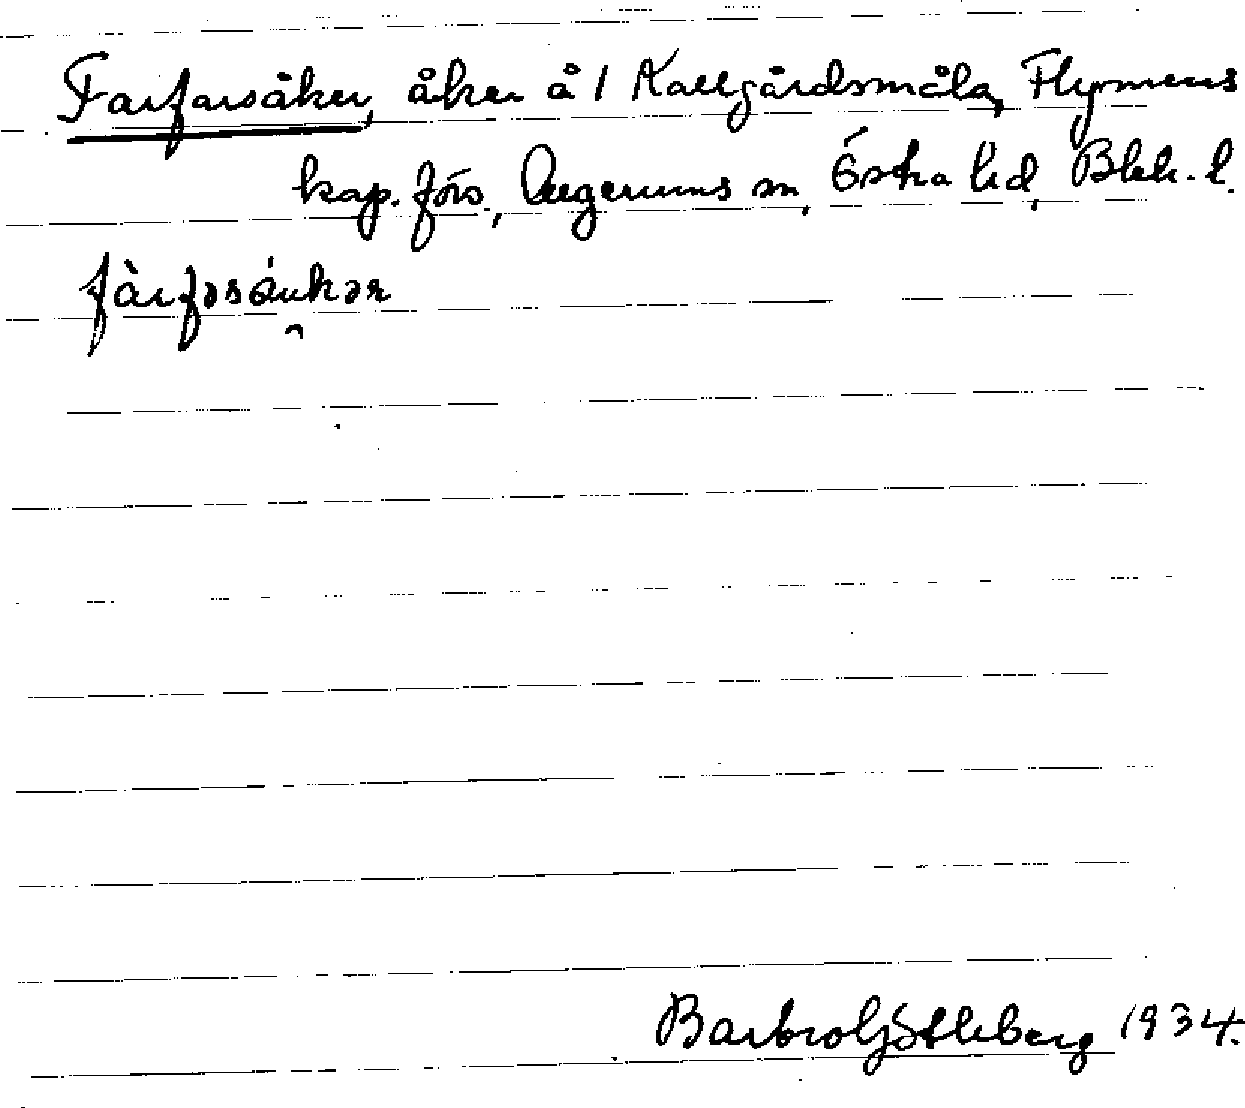 Farfarsåker, åker å 1 Kallgårdsmåla, Flymens
kap. förs., Augerums sn, Östra hd, Blek. l.
fàrfəsáukər
Barbro Göthberg 1934.